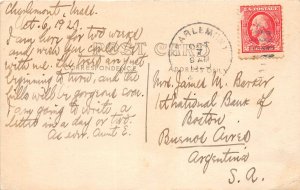 Charlemont, Mass.
Oct. 6, 1927
I am here for two weeks
and wish you could be
with me. The trees are just
beginning to turn, and the
hills will be gorgeous soon.
I am going to write a
letter in a day or two.
As ever, Aunt E.
POST
CORRESPONDENCE
ADDRESS
CHARLEMONT
OCT
7
9 AM
Mrs. James M. Barker
1st National Bank of
Boston
Buenos Aires
Argentina
S. A.